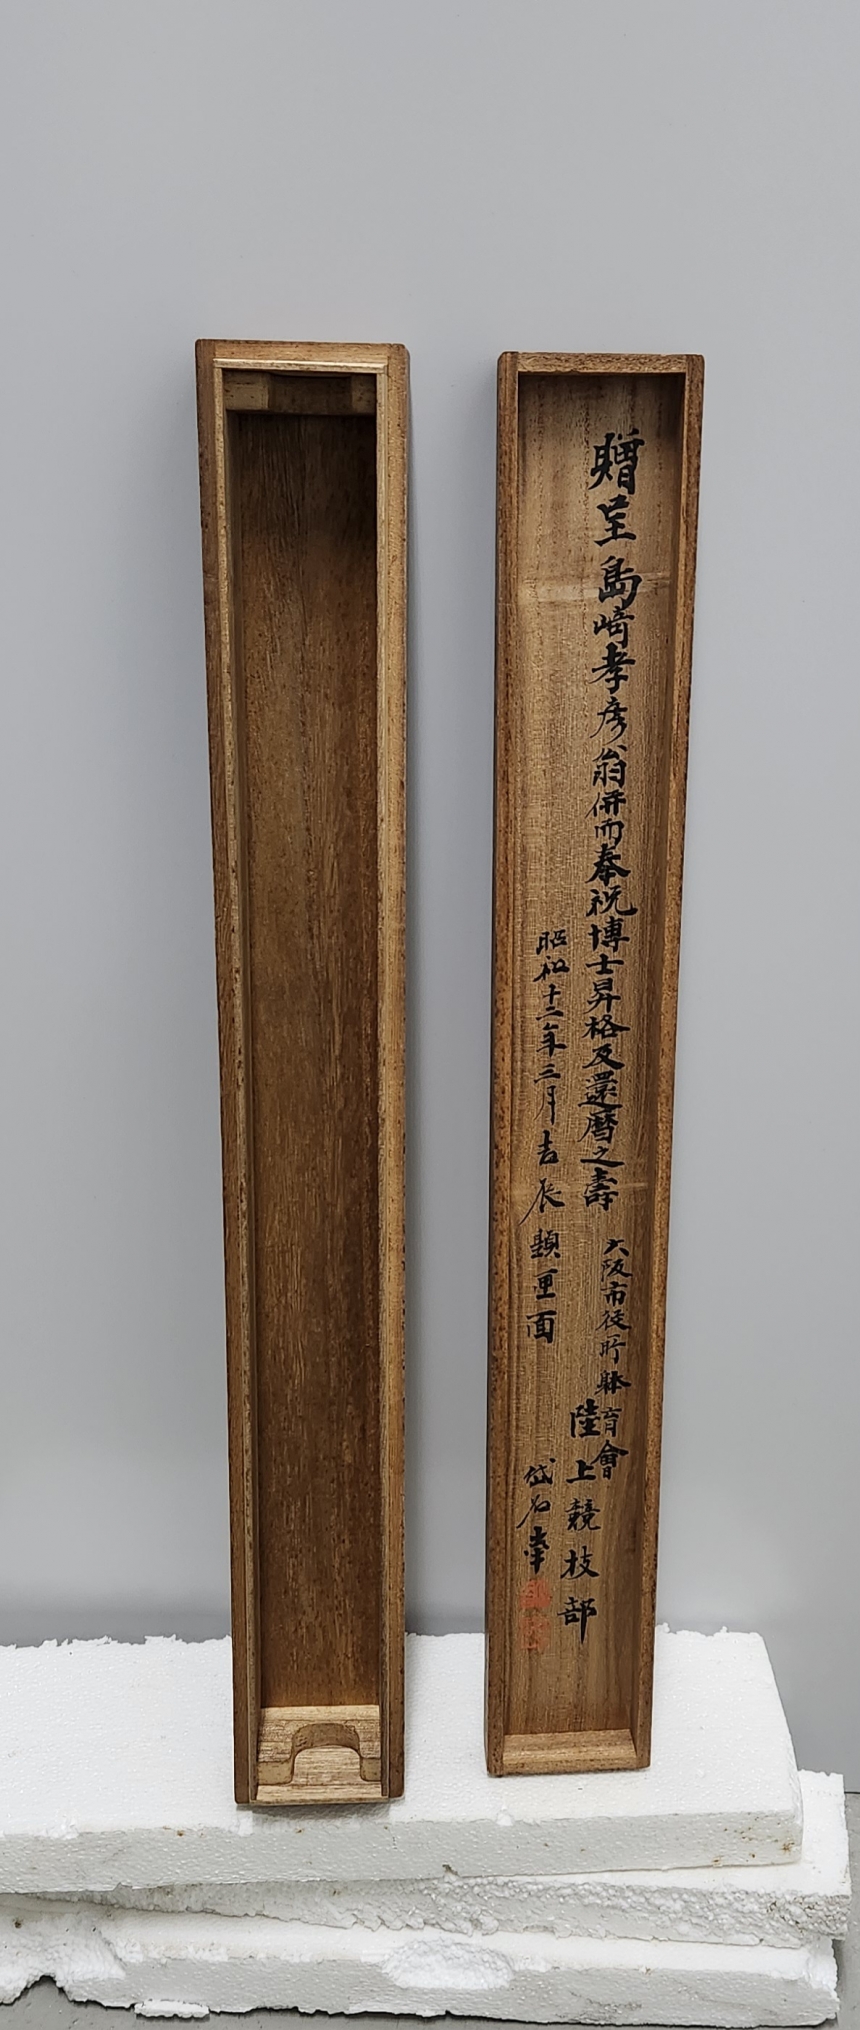 贈呈島﨑孝彦翁併而奉祝博士昇格及還暦之壽
大阪市役所躰育會
陸上競技部
昭和十二年三月吉辰題匣面
岱石